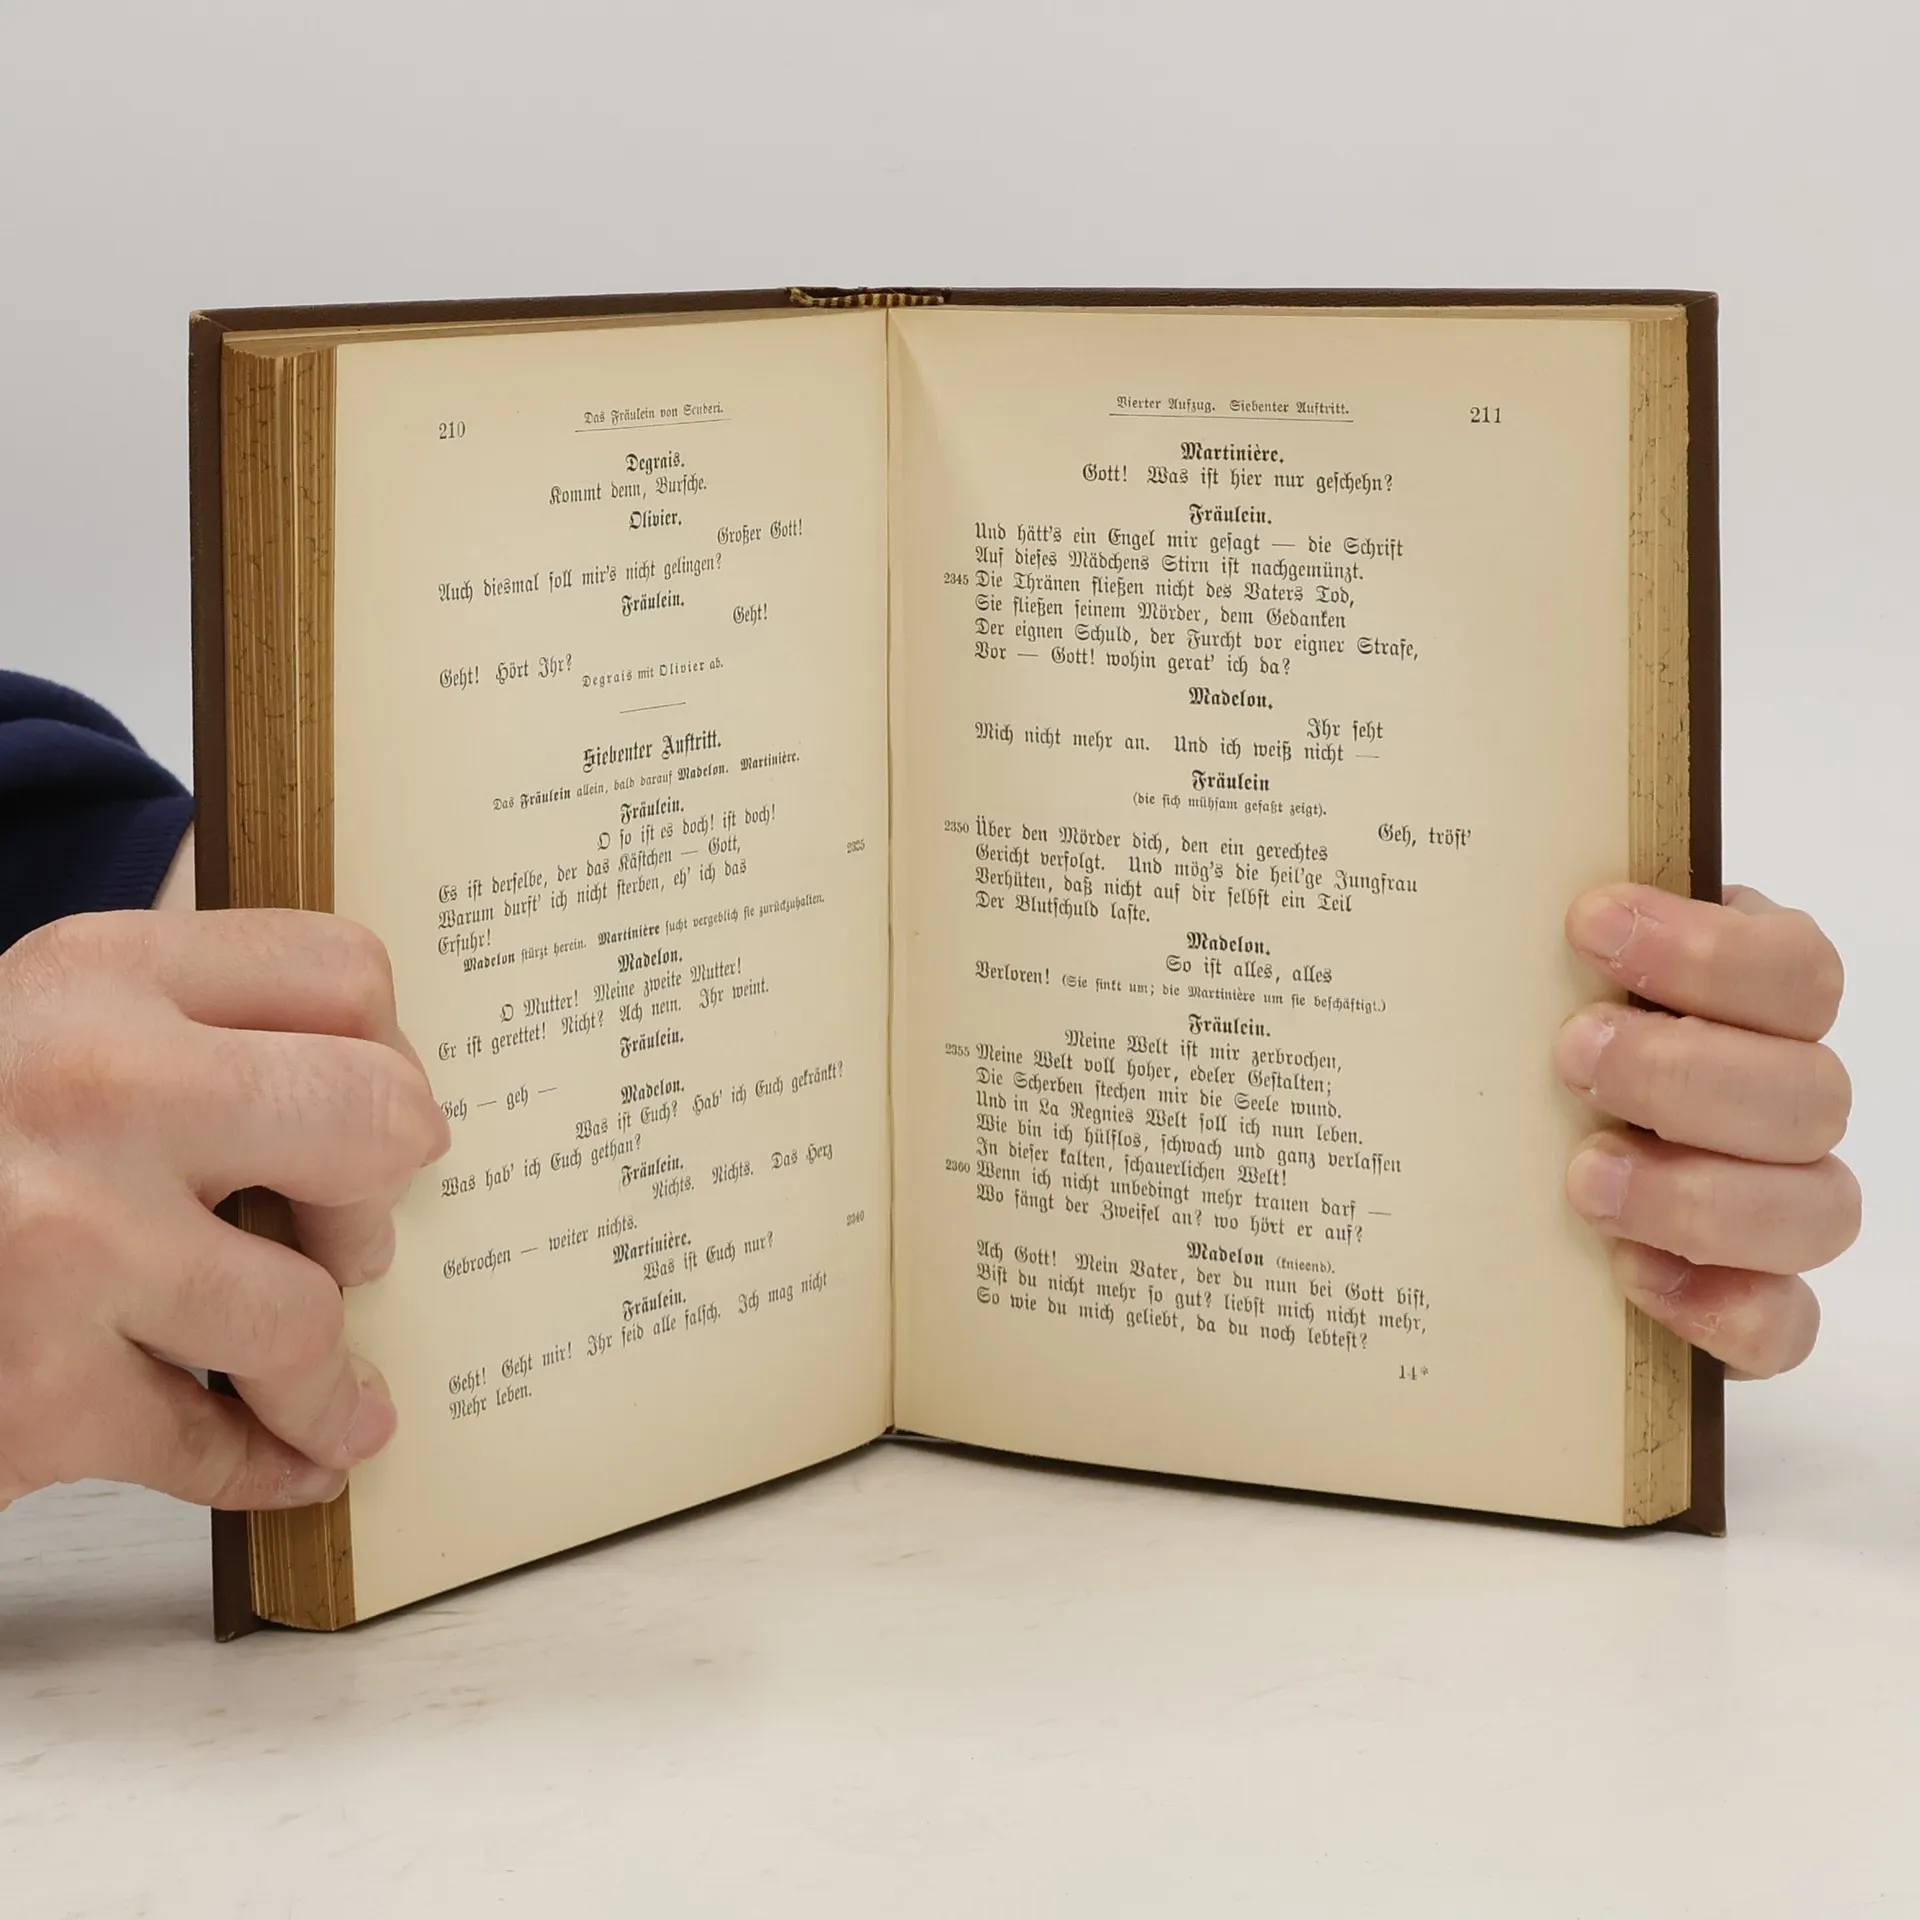 210
Das Fräulein von Scuderi.
Degrais.
Kommt denn, Burſche.
Olivier.
Großer Gott!
Auch diesmal ſoll mir's nicht gelingen?
Fräulein.
Geht!
Geht! Hört Ihr?
Degrais mit Olivier ab.
Siebenter Auftritt.
Das Fräulein allein, bald darauf Madelon. Martinière.
Fräulein.
O ſo iſt es doch! iſt doch!
Es iſt derſelbe, der das Käſtchen — Gott, 2335
Warum durft' ich nicht ſterben, eh' ich das
Erfuhr!
Madelon ſtürzt herein. Martinière ſucht vergeblich ſie zurückzuhalten.
Madelon.
O Mutter! Meine zweite Mutter!
Er iſt gerettet! Nicht? Ach nein. Ihr weint.
Fräulein.
Geh — geh —
Madelon.
Was iſt Euch? Hab' ich Euch gekränkt?
Was hab' ich Euch gethan?
Fräulein.
Nichts. Nichts. Das Herz
Gebrochen — weiter nichts. 2340
Martinière.
Was iſt Euch nur?
Fräulein.
Geht! Geht mir! Ihr ſeid alle falſch. Ich mag nicht
Mehr leben.
Vierter Aufzug. Siebenter Auftritt.
211
Martinière.
Gott! Was iſt hier nur geſchehn?
Fräulein.
Und hätt's ein Engel mir geſagt — die Schrift
Auf dieſes Mädchens Stirn iſt nachgemünzt.
2345 Die Thränen fließen nicht des Vaters Tod,
Sie fließen ſeinem Mörder, dem Gedanken
Der eignen Schuld, der Furcht vor eigner Strafe,
Vor — Gott! wohin gerat' ich da?
Madelon.
Ihr ſeht
Mich nicht mehr an. Und ich weiß nicht —
Fräulein
(die ſich mühſam gefaßt zeigt).
Geh, tröſt'
2350 Über den Mörder dich, den ein gerechtes
Gericht verfolgt. Und mög's die heil'ge Jungfrau
Verhüten, daß nicht auf dir ſelbſt ein Teil
Der Blutſchuld laſte.
Madelon.
So iſt alles, alles
Verloren! (Sie ſinkt um; die Martinière um ſie beſchäftigt.)
Fräulein.
Meine Welt iſt mir zerbrochen,
2355 Meine Welt voll hoher, edeler Geſtalten;
Die Scherben ſtechen mir die Seele wund.
Und in La Regnies Welt ſoll ich nun leben.
Wie bin ich hülflos, ſchwach und ganz verlaſſen
In dieſer kalten, ſchauerlichen Welt!
2360 Wenn ich nicht unbedingt mehr trauen darf —
Wo fängt der Zweifel an? wo hört er auf?
Madelon (knieend).
Ach Gott! Mein Vater, der du nun bei Gott biſt,
Biſt du nicht mehr ſo gut? liebſt mich nicht mehr,
So wie du mich geliebt, da du noch lebteſt?
14*